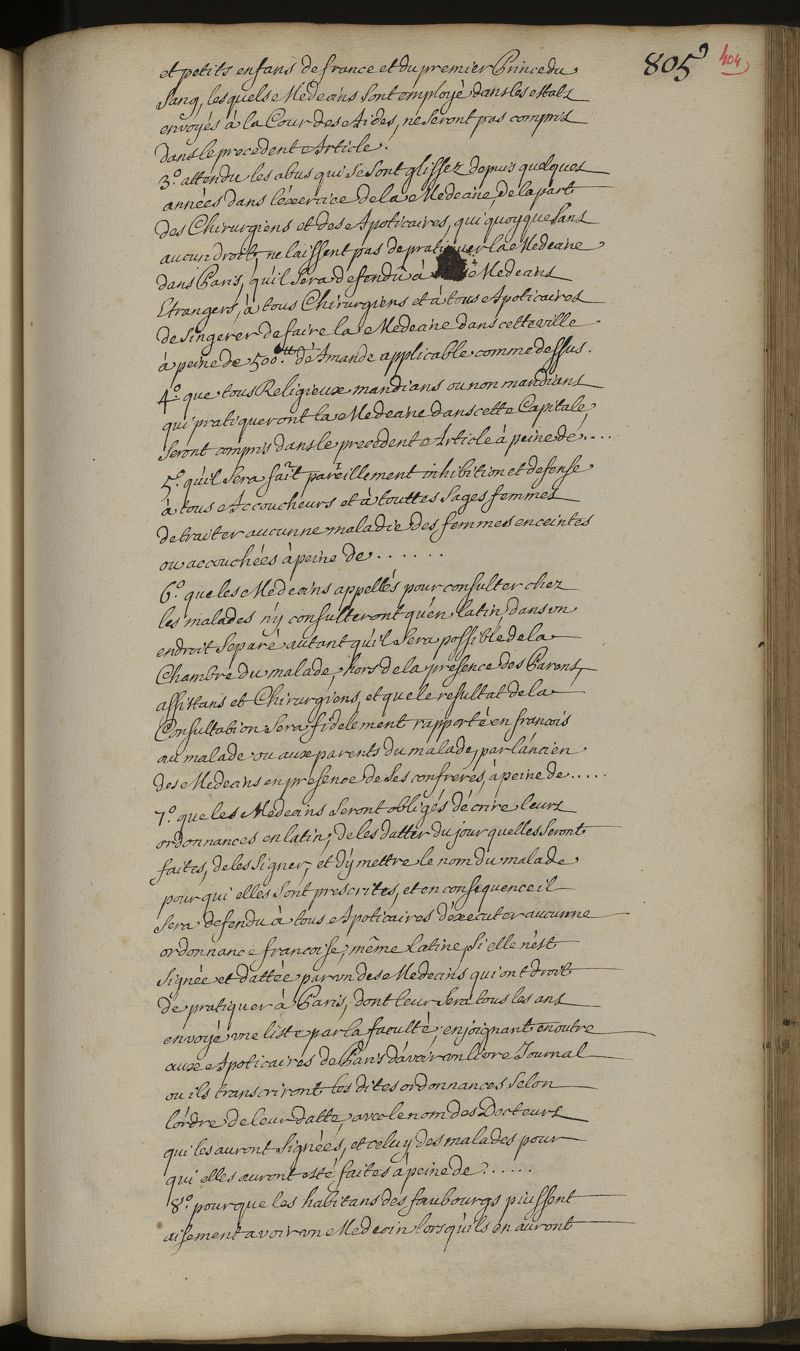 805 404
et petits enfans de france et du premier Prince du
Sang, lesquels Medecins sont employé dans les estats
envoyés à la Cour des Aides, ne seront pas compris
dans le precedent Article.
3.° attendu les abus qui se sont glissez depuis quelques
années dans l'éxercice de la Medecine, de la part
des Chirurgiens et des Apoticaires, qui quoyque sans
aucun droit, ne laissent pas de pratiquer la Medecine
dans Paris, qu'il sera defendu à Medecins
Etrangers, à tous Chirurgiens et à tous Apoticaires
de s'ingerer de faire la Medecine dans cette ville
à peine de 500.tt d'Amande applicable comme dessus.
4.° que tous Religieux mandians ou non mandians
qui pratiqueront la Medecine dans cette Capitale
seront compris dans le precedent Article à peine de ....
5.° qu'il sera fait pareillement inhibition et defense
à tous Accoucheurs et à touttes sages femmes
de traiter aucunne maladie des femmes enceintes
ou accouchées à peine de ......
6.° que les Medecins appellés pour consulter chez
les malades n'y consulteront qu'en latin, dans vn
endroit separé autant qu'il sera possible de la
Chambre du malade, hors de la presence des Parens,
assistans et Chirurgiens, et que le resultat de la
Consultation sera fidelement rapporté en francois
au malade ou aux parents du malade, par l'áncien
des Medecins en presence de ses confreres, à peine de .....
7.° que les Medecins seront obligés d'écrire leurs
ordonnances en latin, de les datter du jour qu'elles seront
faites, de les signer, et d'y mettre le nom du malade
pour qui elles sont prescrites, et en consequence il
sera defendu à tous Apoticaires d'éxecuter aucunne
ordonnance francoise, même latine, si elle n'est
signée et dattée par vn des Medecins qui ont droit
de pratiquer à Paris, dont leur sera tous les ans
envoyé vne liste par la faculté, enjoignant en outre
aux Apoticaires de Paris d'avoir vn livre Journal
ou ils transcriront les dites ordonnances selon
l'órdre de leur datte, avec le nom des Docteurs
qui les auront signées, et celuy des malades pour
qui elles auront esté faites à peine de ? .....
8.° pour que les habitans des faubourgs puissent
aisement avoir vn Medecin lorsqu'ils en auront